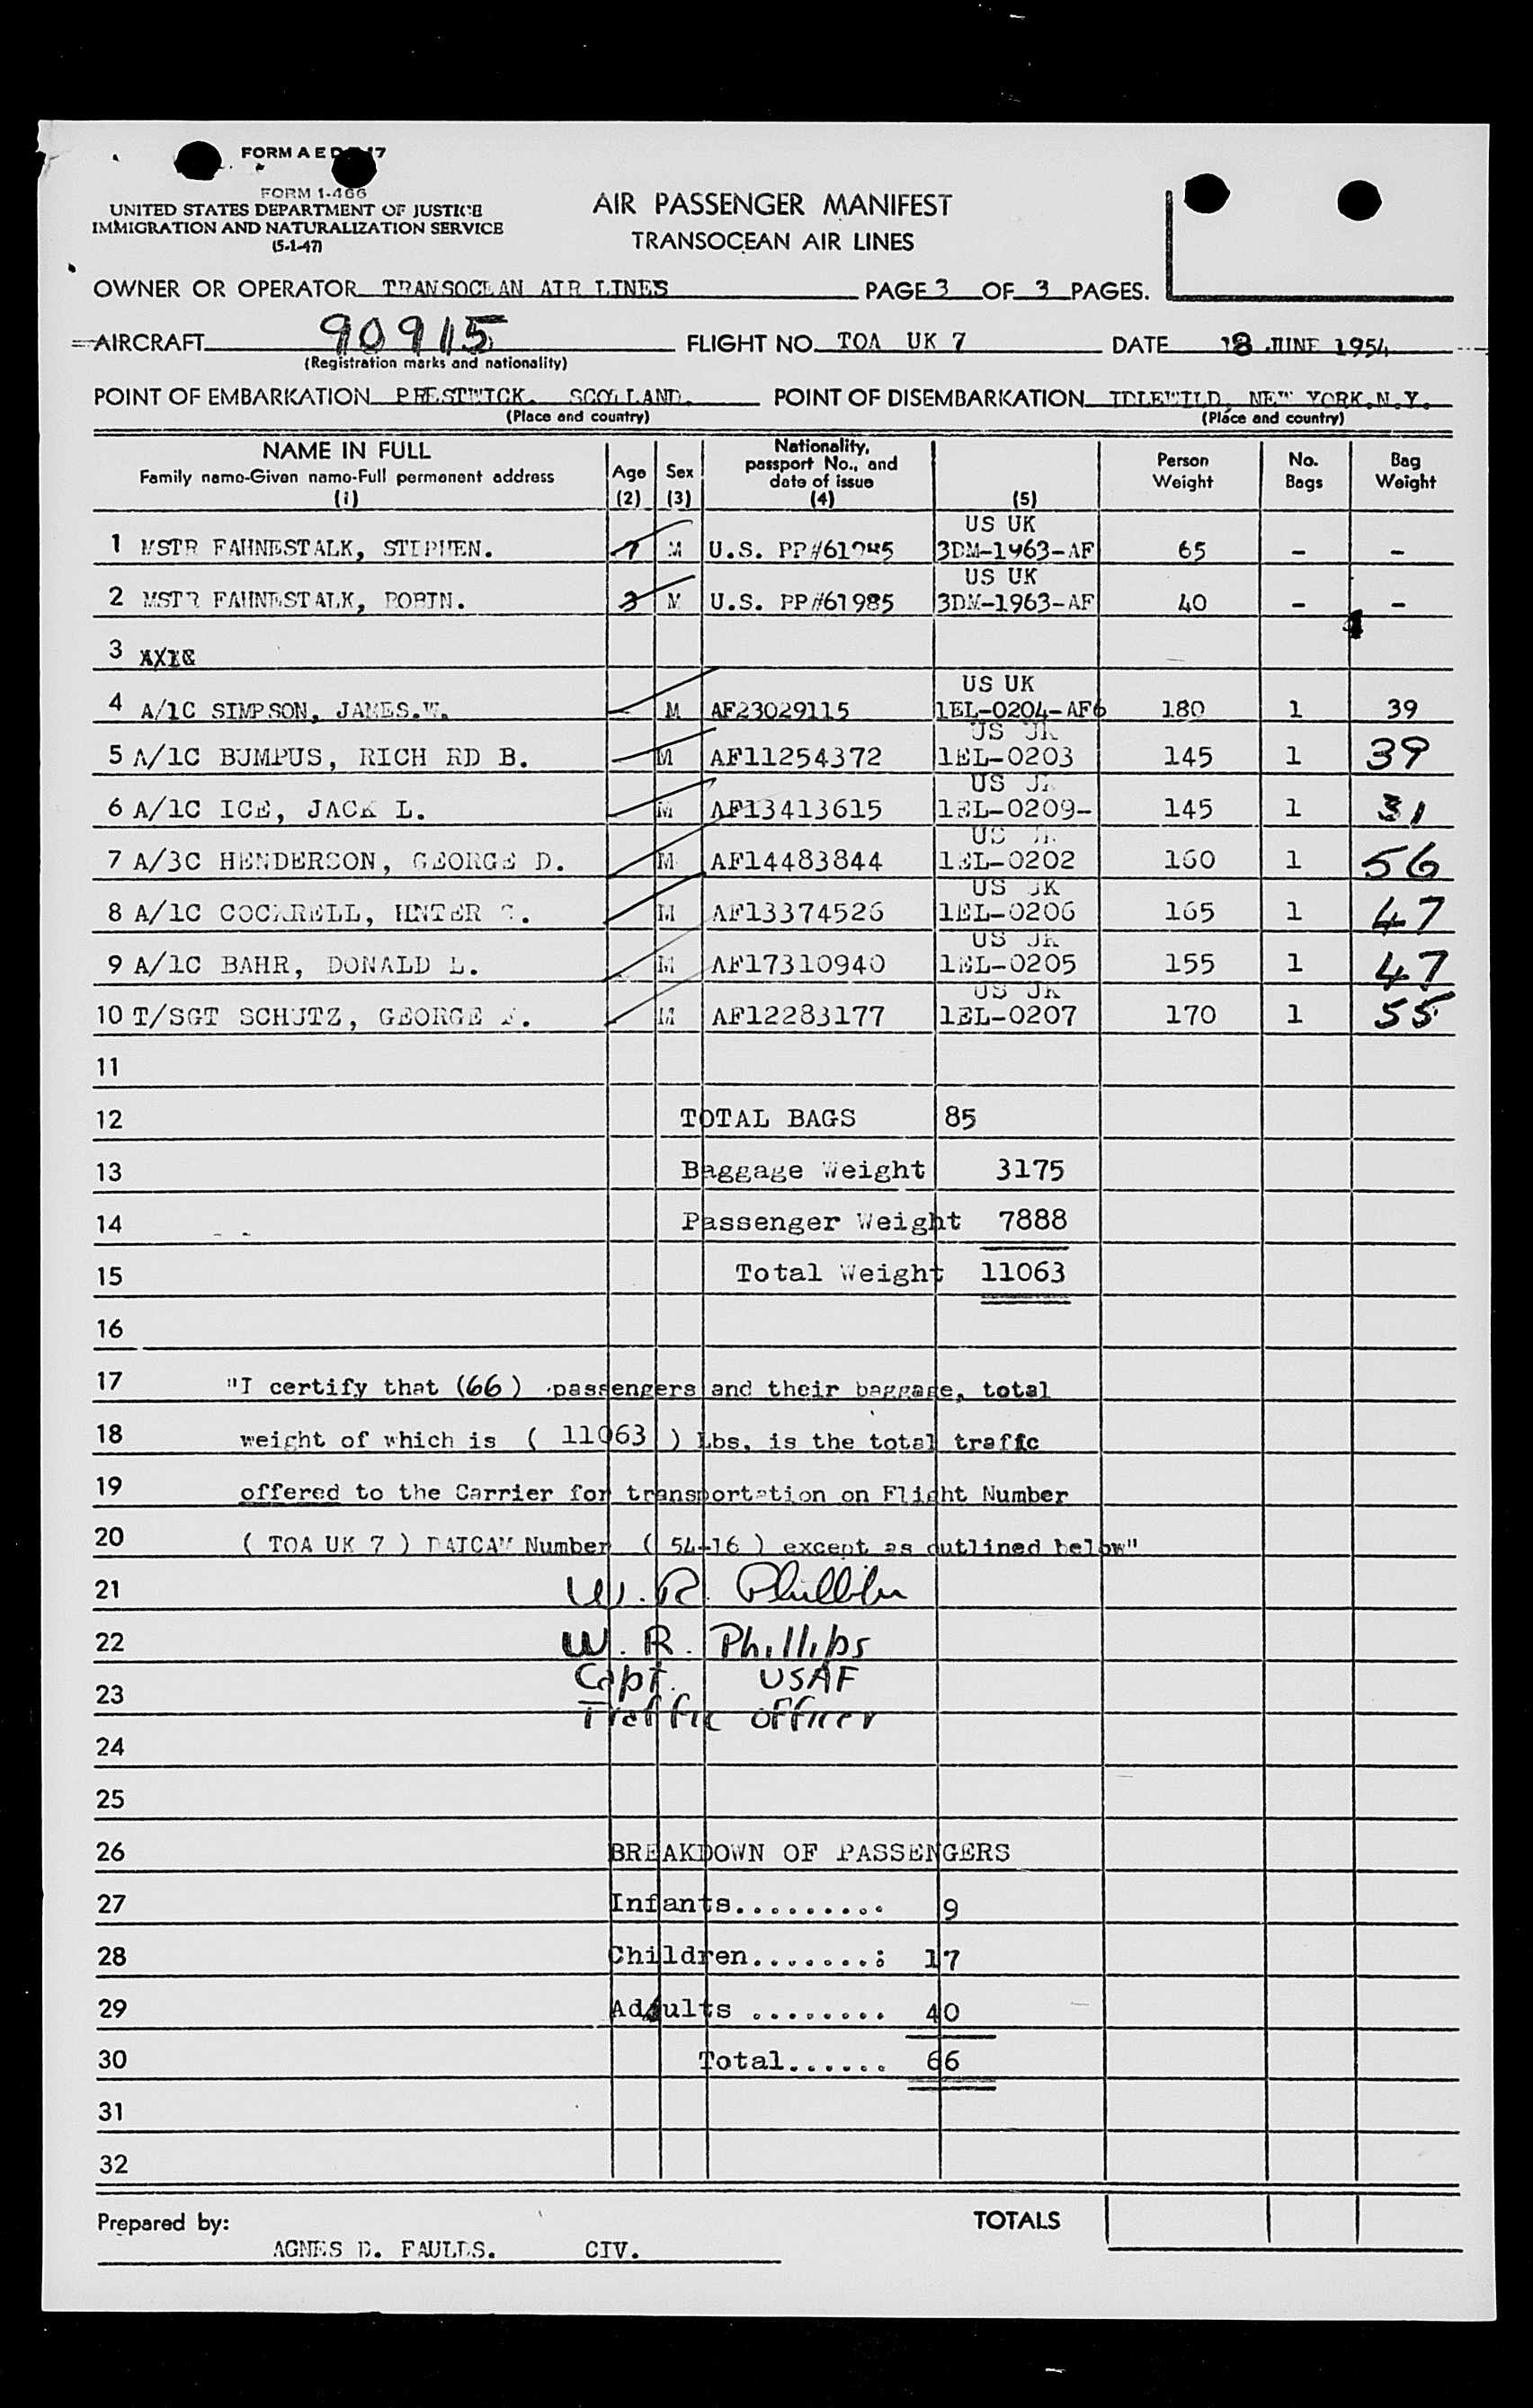 FORM A E D 17
FORM I-466
UNITED STATES DEPARTMENT OF JUSTICE
IMMIGRATION AND NATURALIZATION SERVICE
(5-1-47)
AIR PASSENGER MANIFEST
TRANSOCEAN AIR LINES
OWNER OR OPERATOR TRANSOCEAN AIR LINES PAGE 3 OF 3 PAGES.
AIRCRAFT 90915 FLIGHT NO. TOA UK 7 DATE 18 JUNE 1954
(Registration marks and nationality)
POINT OF EMBARKATION PRESTWICK. SCOTLAND. POINT OF DISEMBARKATION IDLEWILD, NEW YORK,N.Y.
(Place and country) (Place and country)
NAME IN FULL
Family name-Given name-Full permanent address
(1)
Age (2)
Sex (3)
Nationality, passport No., and date of issue (4)
(5)
Person Weight
No. Bags
Bag Weight
US UK
1 MSTR FAHNESTALK, STEPHEN. 7 M U.S. PP#61985 3DM-1963-AF 65 - -
US UK
2 MSTR FAHNESTALK, ROBIN. 3 M U.S. PP#61985 3DM-1963-AF 40 - -
3
US UK
4 A/1C SIMPSON, JAMES.W. M AF23029115 1EL-0204-AF6 180 1 39
US UK
5 A/1C BUMPUS, RICH RD B. M AF11254372 1EL-0203 145 1 39
US UK
6 A/1C ICE, JACK L. M AF13413615 1EL-0209- 145 1 31
US UK
7 A/3C HENDERSON, GEORGE D. M AF14483844 1EL-0202 160 1 56
US UK
8 A/1C COCKRELL, HNTER M AF13374526 1EL-0206 165 1 47
US UK
9 A/1C BAHR, DONALD L. M AF17310940 1EL-0205 155 1 47
US UK
10 T/SGT SCHUTZ, GEORGE F. M AF12283177 1EL-0207 170 1 55
11
12 TOTAL BAGS 85
13 Baggage Weight 3175
14 Passenger Weight 7888
15 Total Weight 11063
16
17 "I certify that (66) passengers and their baggage, total
18 weight of which is ( 11063 ) Lbs, is the total traffc
19 offered to the Carrier for transportation on Flight Number
20 ( TOA UK 7 ) DAICAW Number ( 54-16 ) except as outlined below"
21 W. R. Phillips
22 W. R. Phillips
Capt. USAF
23
Traffic officer
24
25
26 BREAKDOWN OF PASSENGERS
27 Infants.......... 9
28 Children.......: 17
29 Adults ........ 40
30 Total...... 66
31
32
Prepared by: TOTALS
AGNES D. FAULLS. CIV.